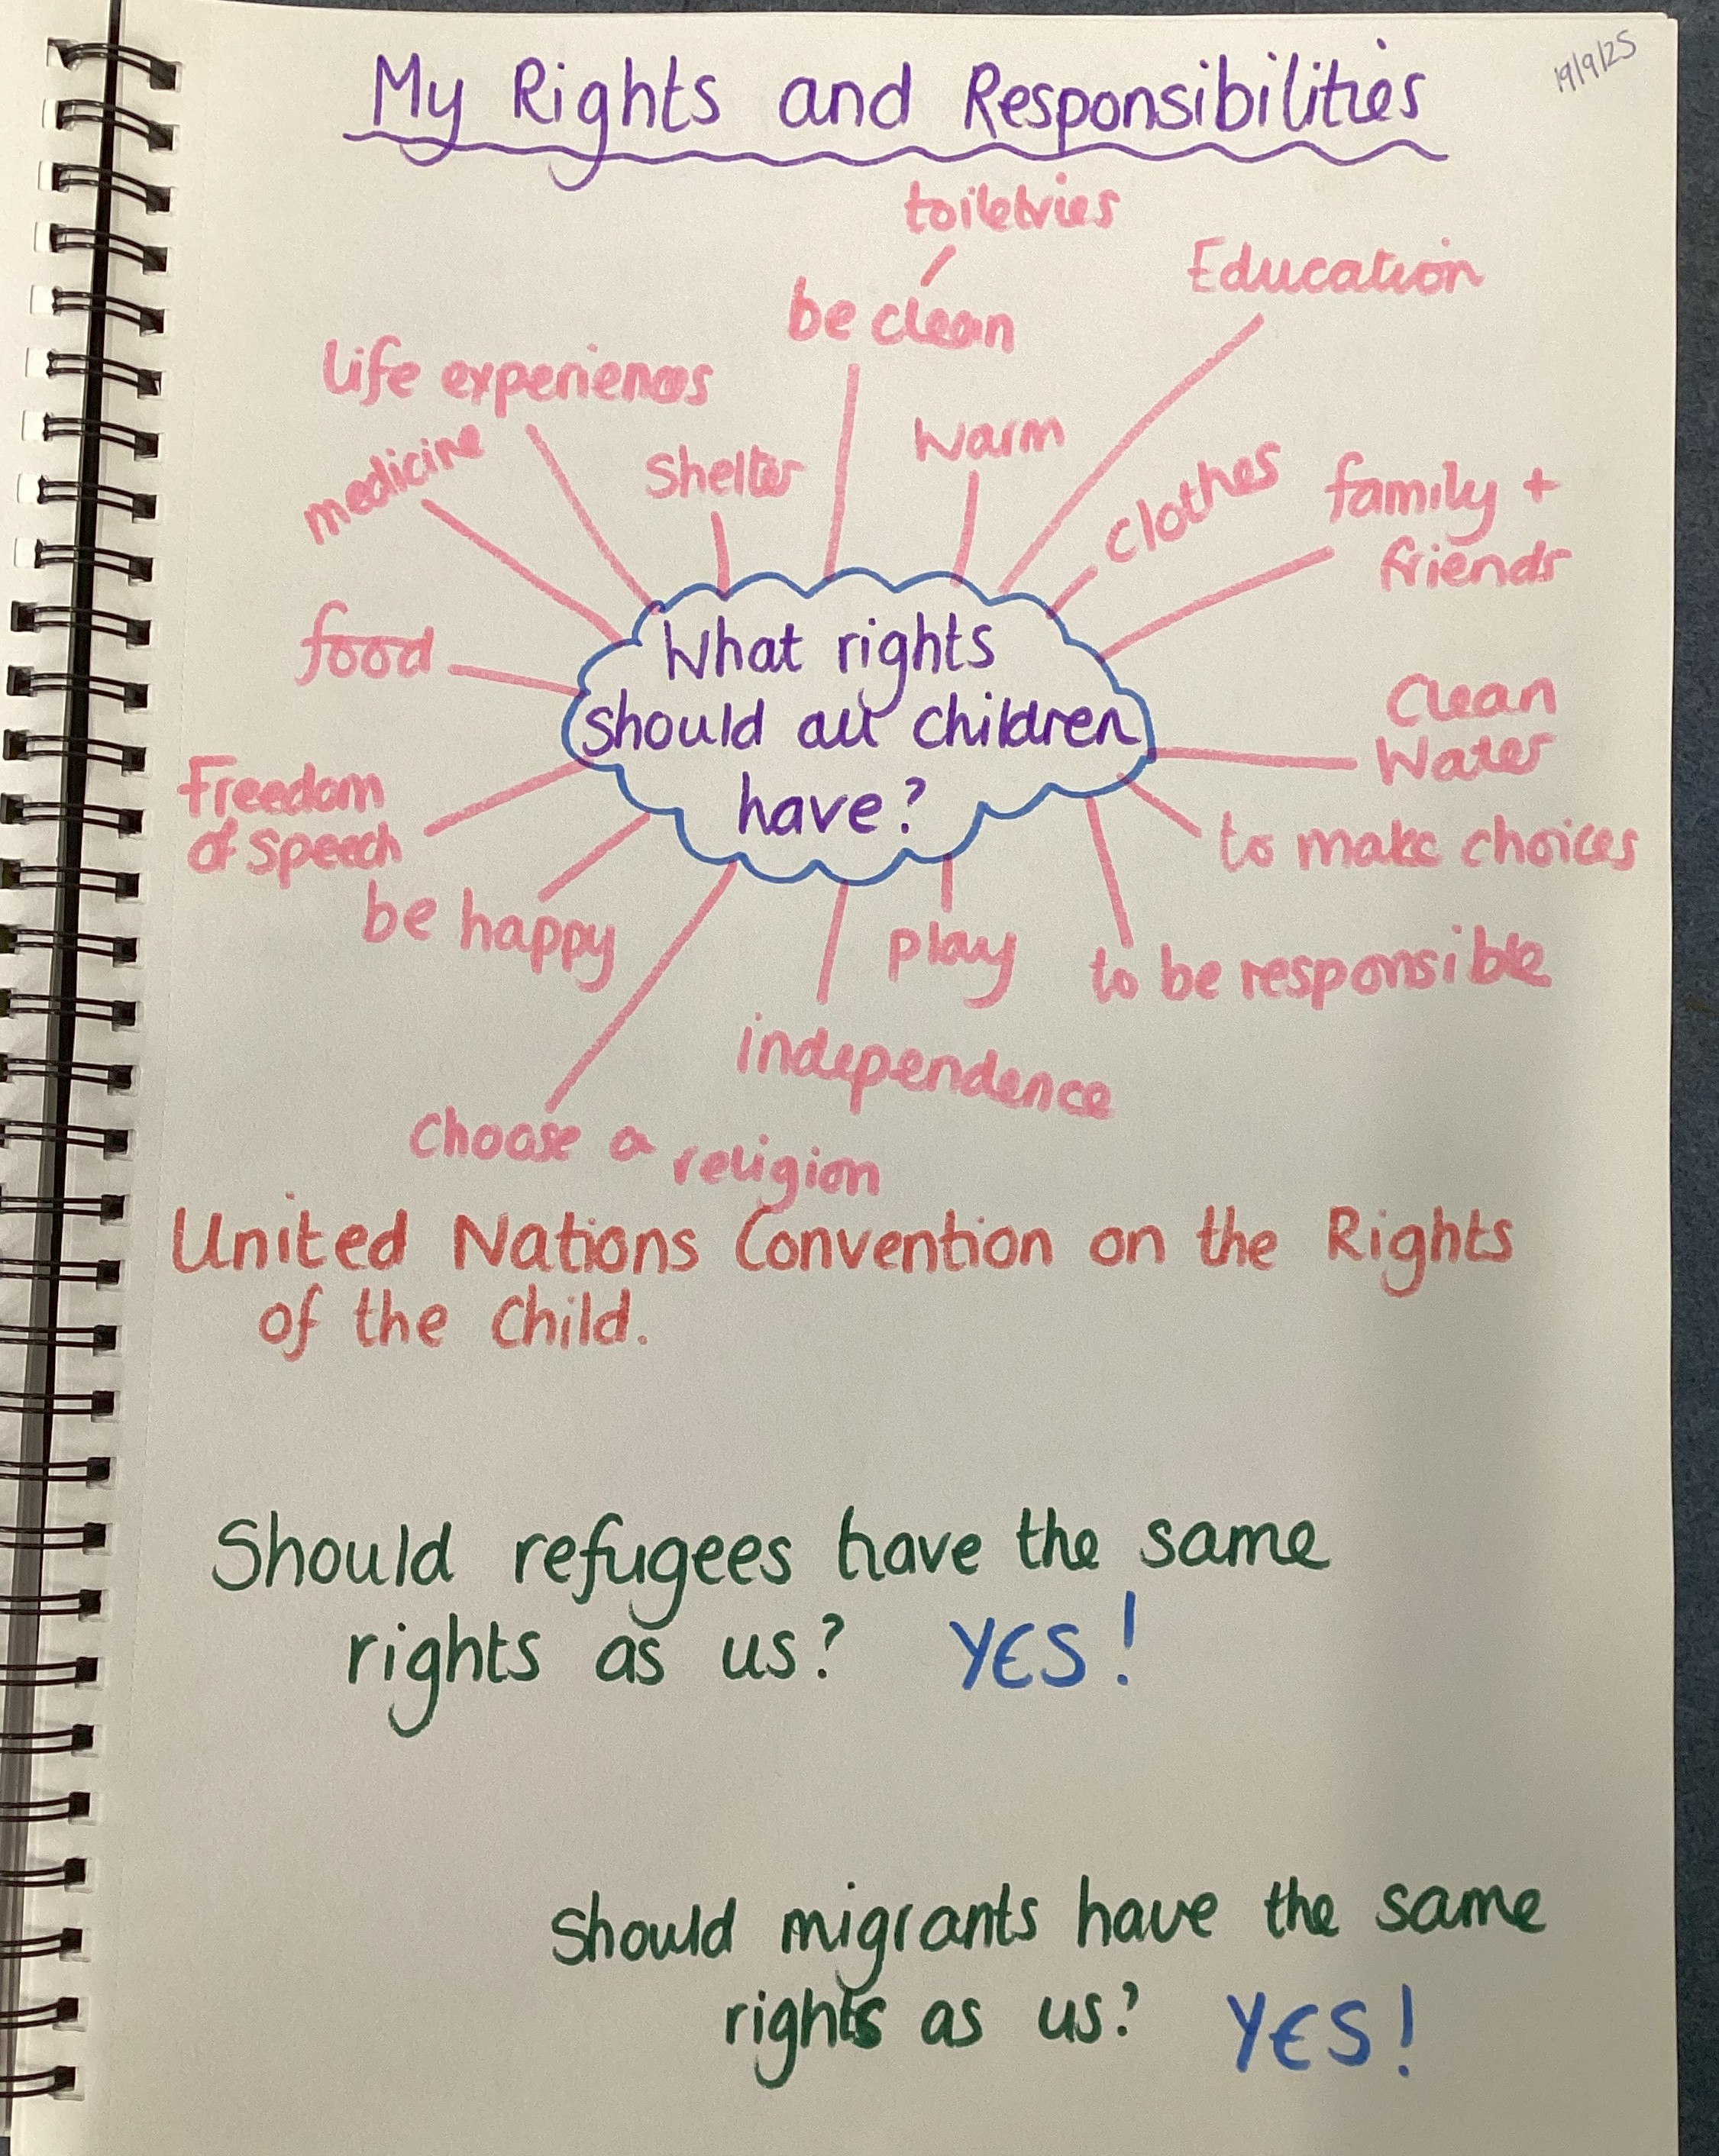 19/9/25
My Rights and Responsibilities
toiletries
be clean
Education
life experiences
medicine
Shelter
Warm
clothes
family +
friends
food
What rights
should all children
have?
Clean
Water
Freedom
of speech
to make choices
be happy
play
to be responsible
independence
choose a religion
United Nations Convention on the Rights
of the Child.
Should refugees have the same
rights as us? YES!
Should migrants have the same
rights as us? YES!